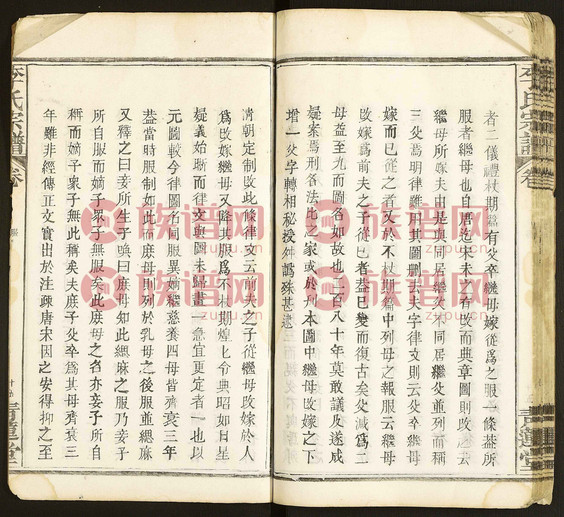 者二儀禮杖期䇿有父卒繼母嫁從爲之服一條葢所
服者繼母也自唐迄宋未之有改而典章圖則改
繼母所嫁夫由是與同居繼父不同居繼父並列而稱
三父焉明律雖用其圖刪去夫字律文則云父卒繼母
嫁而已從之者又於不杖期篇中列母之報服云繼母
改嫁爲前夫之子從已者葢已變而復古矣父減爲二
母益至九而圖名如故也一百八十年莫敢議及遂成
疑案焉刑名法比之家或於刋本圖中繼母改嫁之下
增一父字轉相秘授舛譌殊甚
淸朝定制改此條律文云前夫之子從繼母改嫁於人
爲改嫁繼母又降其服爲不杖期煌上令典昭如日星
疑義始晣而律文與圖未歸畫一急宜更定者一也以
元圖較今律圖名同服異嫡繼慈養四母皆齊衰三年
葢當時服制如此而庶母則列於乳母之後服並緦麻
又釋之曰妾所生子喚曰庶母如此緦麻之服乃妾子
所自服而嫡子衆子無服矣此庶母之名亦妾子所自
稱而嫡子衆子無此稱矣夫庶子父卒爲其母齊衰三
年雖非經傳正文實出於注疎唐宋因之安得抑之至
李氏宗譜
卷
青蓮堂
李氏宗譜
卷
青蓮堂
族谱网
zupu.cn
族谱网
zupu.cn
族谱网
zupu.cn
族谱网
zupu.cn